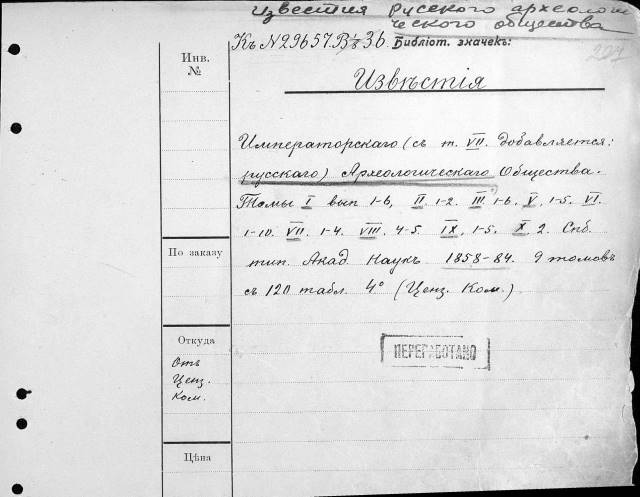 Известия русского археологи
ческого общества
Къ № 29657. В 1/8 36 Библіот. значекъ:
207
Инв.
№
Извѣстія
Императорскаго (съ т. VII. добавляется:
русскаго) Археологическаго Общества.
Томы I вып 1-6, II. 1-2. III. 1-6. V. 1-5. VI.
1-10. VII. 1-4. VIII. 4-5. IX. 1-5. X. 2. Спб.
тип. Акад. Наукъ. 1858-84. 9 томовъ
съ 120 табл. 4° (Ценз. Ком.)
По заказу
ПЕРЕРАБОТАНО
Откуда
Отъ
Ценз.
Ком.
Цѣна